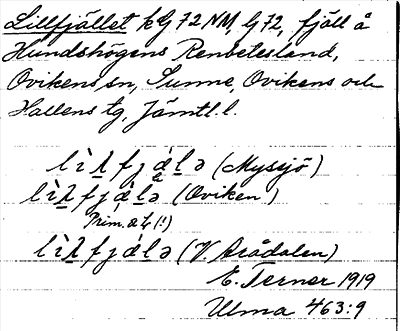 Lillfjället kG 72 NM, G 72, fjäll å
Hundshögens Renbetesland,
Ovikens sn, Sunne, Ovikens och
Hallens tg, Jämtl. l.
lìḷfjælə (Myssjö)
lìḷfjælə (Oviken)
Prim. a 4 (!)
lìḷfjálə (V. Arådalen)
E. Terner 1919
Ulma 463:9